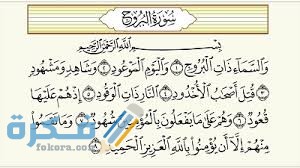 سُورَةُ الْبُرُوجِ
بِسْمِ اللَّهِ الرَّحْمَٰنِ الرَّحِيمِ
وَالسَّمَاءِ ذَاتِ الْبُرُوجِ ۝١ وَالْيَوْمِ الْمَوْعُودِ ۝٢ وَشَاهِدٍ وَمَشْهُودٍ
۝٣ قُتِلَ أَصْحَابُ الْأُخْدُودِ ۝٤ النَّارِ ذَاتِ الْوَقُودِ ۝٥ إِذْ هُمْ عَلَيْهَا
قُعُودٌ ۝٦ وَهُمْ عَلَىٰ مَا يَفْعَلُونَ بِالْمُؤْمِنِينَ شُهُودٌ ۝٧ وَمَا نَقَمُوا
مِنْهُمْ إِلَّا أَنْ يُؤْمِنُوا بِاللَّهِ الْعَزِيزِ الْحَمِيدِ ۝٨
فكرة
fokora.com